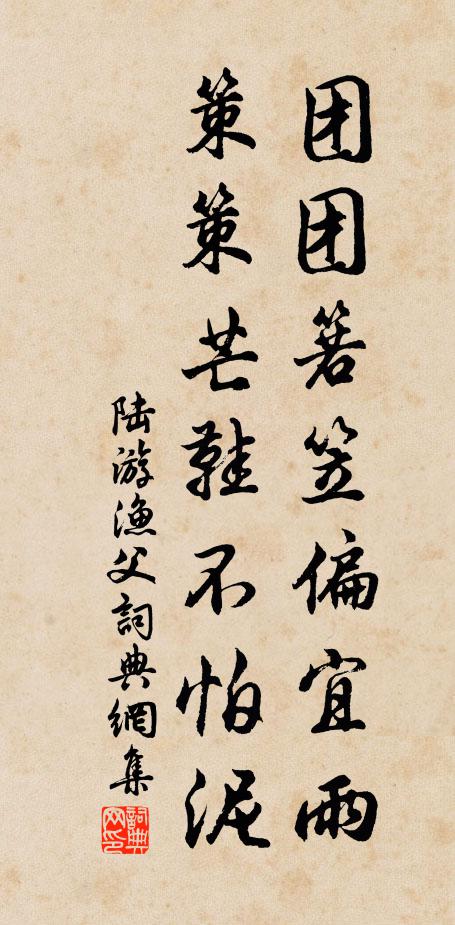 团团箬笠偏宜雨
策策芒鞋不怕泥
陆游渔父詞典網集
詞典
网印